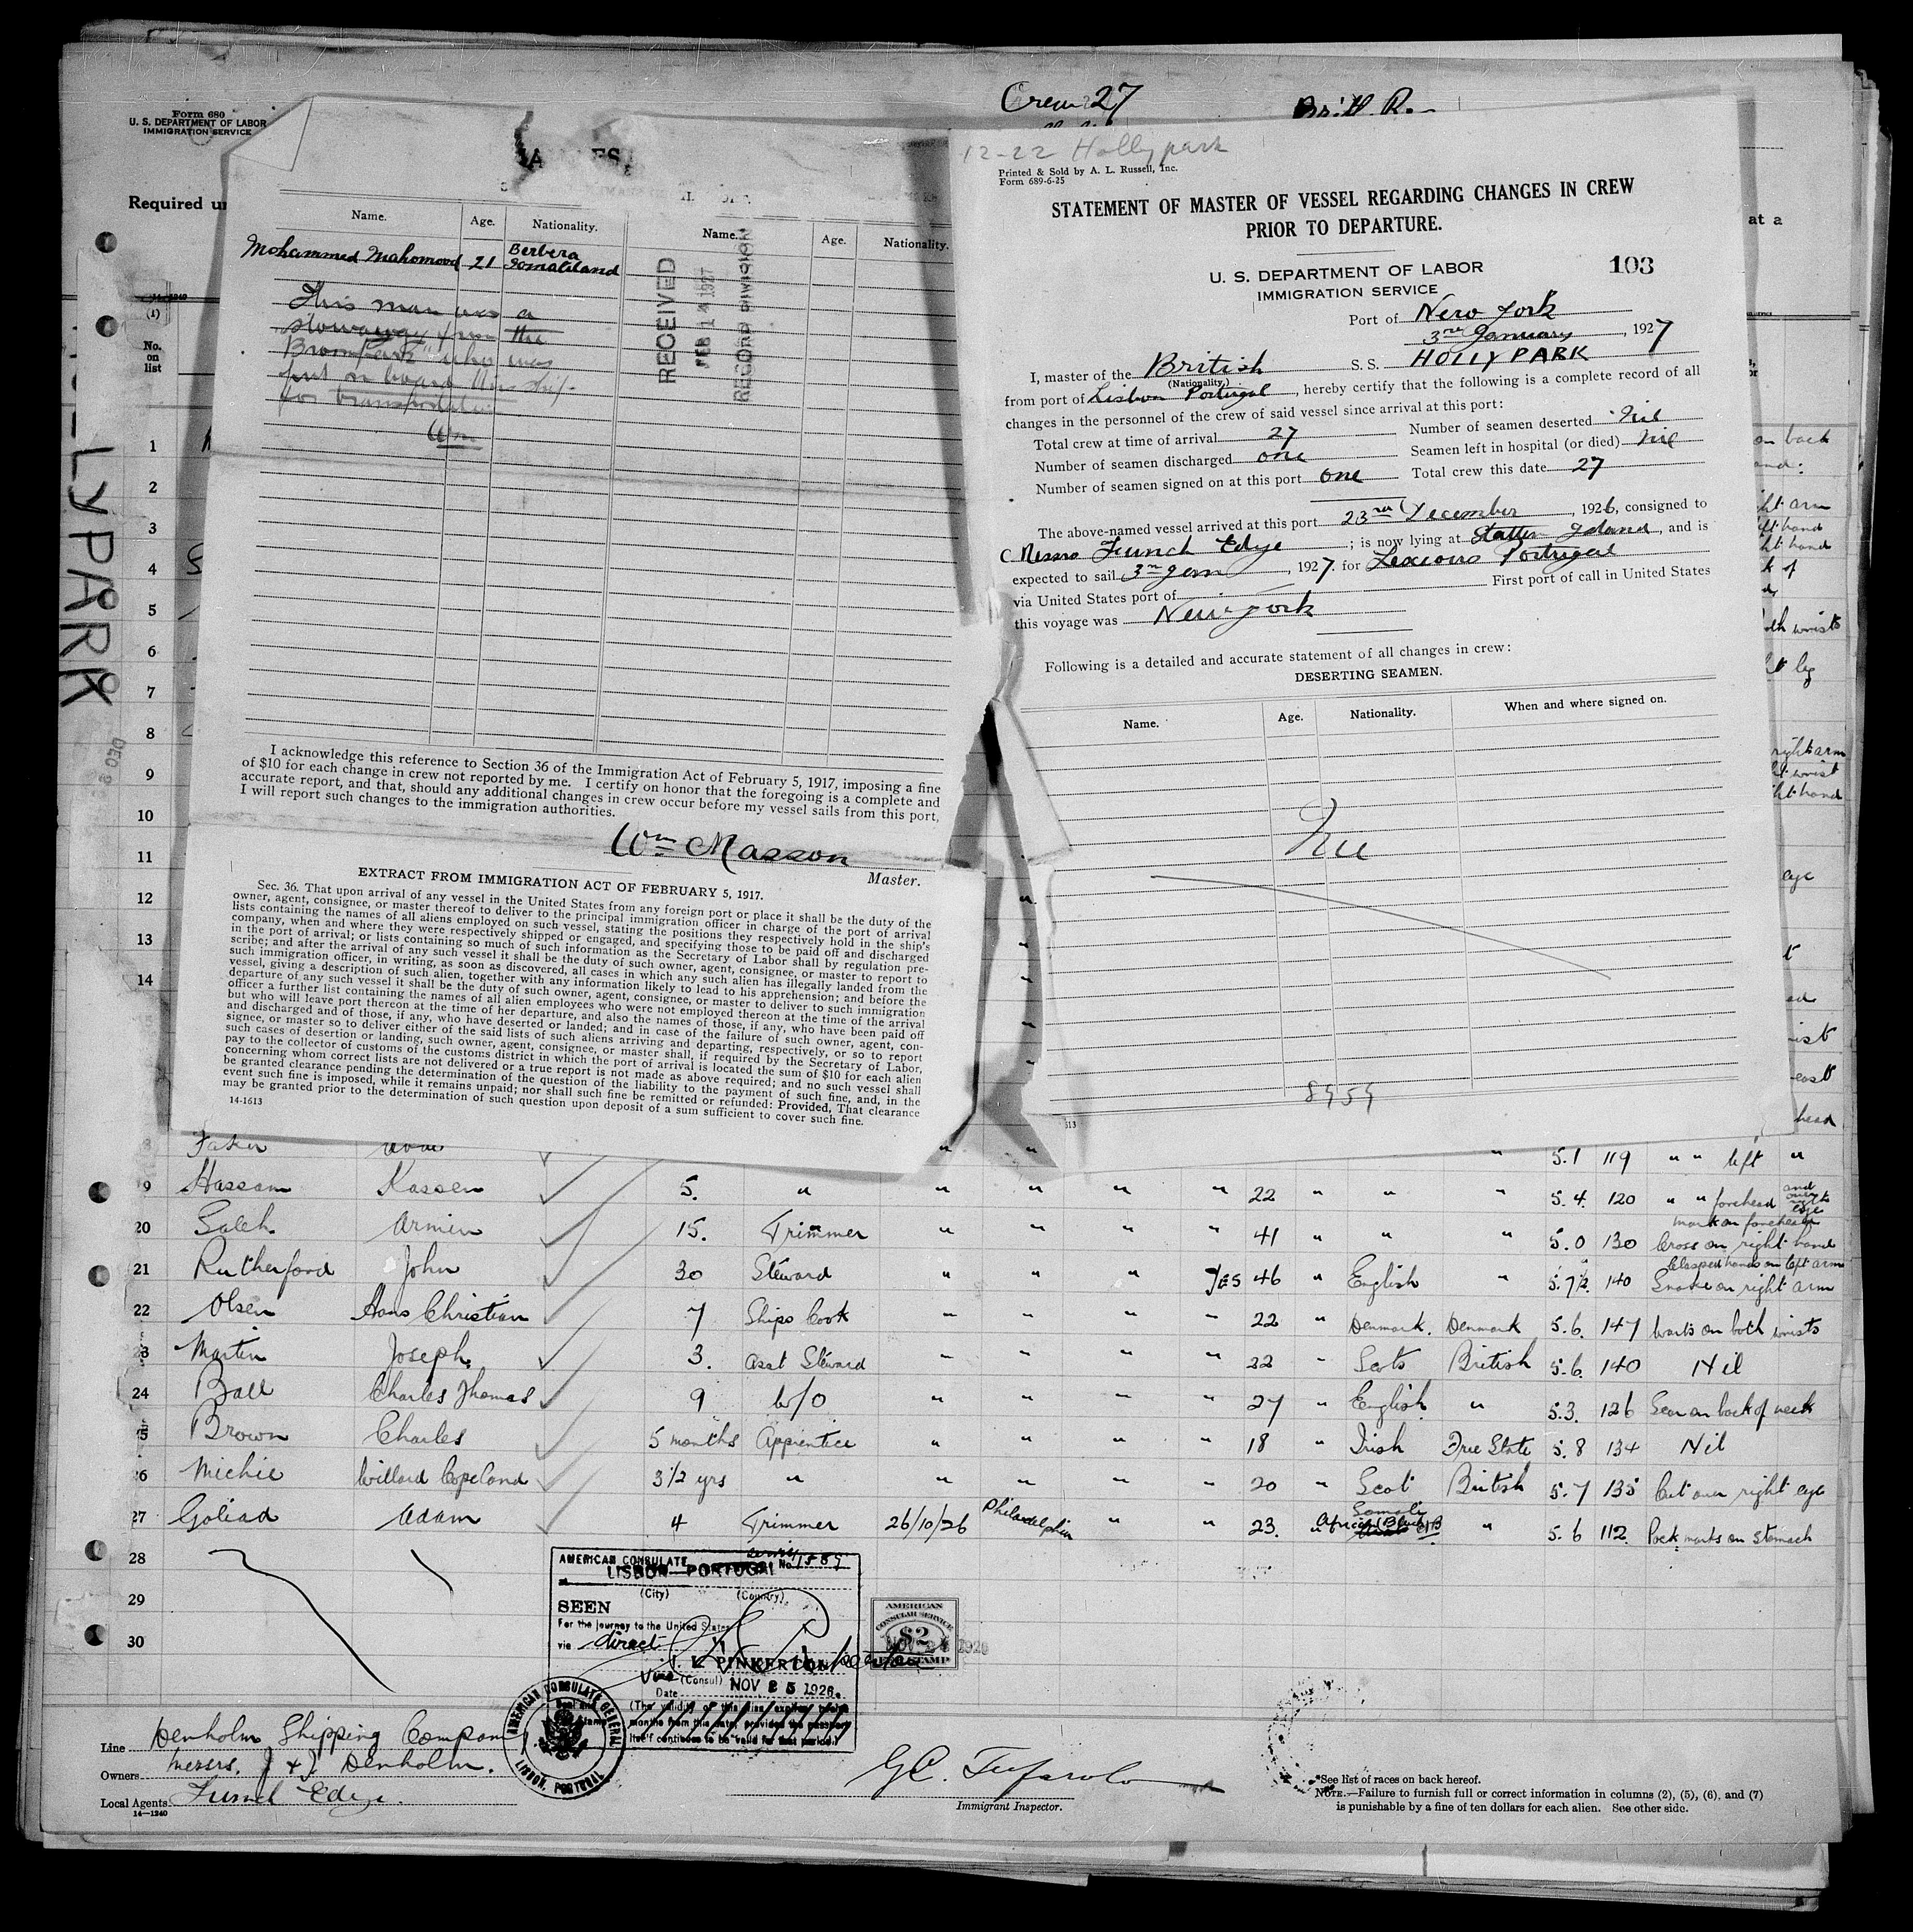 Crew 27
Form 680
U. S. DEPARTMENT OF LABOR
IMMIGRATION SERVICE
Required
at a
No.
on
list
HOLLYPARK
Name. Age. Nationality. Name. Age. Nationality.
Mohammed Mahomood 21 Berbera Somaliland
This man was a
stowaway from the
"Brompark" who was
put on board this ship
for transportation
Wm
RECEIVED
FEB 14 1927
RECORD DIVISION
I acknowledge this reference to Section 36 of the Immigration Act of February 5, 1917, imposing a fine
of $10 for each change in crew not reported by me. I certify on honor that the foregoing is a complete and
accurate report, and that, should any additional changes in crew occur before my vessel sails from this port,
I will report such changes to the immigration authorities.
Wm Masson
Master.
EXTRACT FROM IMMIGRATION ACT OF FEBRUARY 5, 1917.
Sec. 36. That upon arrival of any vessel in the United States from any foreign port or place it shall be the duty of the
owner, agent, consignee, or master thereof to deliver to the principal immigration officer in charge of the port of arrival
lists containing the names of all aliens employed on such vessel, stating the positions they respectively hold in the ship's
company, when and where they were respectively shipped or engaged, and specifying those to be paid off and discharged
in the port of arrival; or lists containing so much of such information as the Secretary of Labor shall by regulation pre-
scribe; and after the arrival of any such vessel it shall be the duty of such owner, agent, consignee, or master to report to
such immigration officer, in writing, as soon as discovered, all cases in which any such alien has illegally landed from the
vessel, giving a description of such alien, together with any information likely to lead to his apprehension; and before the
departure of any such vessel it shall be the duty of such owner, agent, consignee, or master to deliver to such immigration
officer a further list containing the names of all alien employees who were not employed thereon at the time of the arrival
but who will leave port thereon at the time of her departure, and also the names of those, if any, who have been paid off
and discharged and of those, if any, who have deserted or landed; and in case of the failure of such owner, agent, con-
signee, or master so to deliver either of the said lists of such aliens arriving and departing, respectively, or so to report
such cases of desertion or landing, such owner, agent, consignee, or master shall, if required by the Secretary of Labor,
pay to the collector of customs of the customs district in which the port of arrival is located the sum of $10 for each alien
concerning whom correct lists are not delivered or a true report is not made as above required; and no such vessel shall
be granted clearance pending the determination of the question of the liability to the payment of such fine, and, in the
event such fine is imposed, while it remains unpaid; nor shall such fine be remitted or refunded: Provided, That clearance
may be granted prior to the determination of such question upon deposit of a sum sufficient to cover such fine.
14-1613
12-22 Hollypark
Printed & Sold by A. L. Russell, Inc.
Form 689-6-25
STATEMENT OF MASTER OF VESSEL REGARDING CHANGES IN CREW
PRIOR TO DEPARTURE.
U. S. DEPARTMENT OF LABOR
IMMIGRATION SERVICE
103
Port of New York
3rd January, 1927
I, master of the British S. S. HOLLYPARK
(Nationality)
from port of Lisbon Portugal, hereby certify that the following is a complete record of all
changes in the personnel of the crew of said vessel since arrival at this port:
Total crew at time of arrival 27 Number of seamen deserted Nil
Number of seamen discharged one Seamen left in hospital (or died) Nil
Number of seamen signed on at this port one Total crew this date 27
The above-named vessel arrived at this port 23rd December, 1926, consigned to
Messrs Funch Edye; is now lying at Statten Island, and is
expected to sail 3rd Jan, 1927. for Lexious Portugal
via United States port of First port of call in United States
this voyage was New York
Following is a detailed and accurate statement of all changes in crew:
DESERTING SEAMEN.
Name. Age. Nationality. When and where signed on.
Nil
8959
1
2
3
4
5
6
7
8
9
10
11
12
13
14
5.1 119 " " left "
9 Hassan Kassen 5. " " " " " 22 " " " 5.4. 120 " " forehead and over right eye
20 Saleh Armin 15. Trimmer " " " " 41 " " " 5.0 130 mark on forehead Cross on right hand
21 Rutherford John 30 Steward " " " Yes 46 " English " 5.7½. 140 Clasped hands on left arm Snake on right arm
22 Olsen Hans Christian 7 Ships Cook " " " " 22 " Denmark. Denmark 5.6. 147 Warts on both wists
23 Martin Joseph. 3. Asst Steward " " " " 22 " Scots British 5.6. 140 Nil
24 Ball Charles Thomas 9 W/O " " " " 27 " English " 5.3. 126 Scar on back of neck
25 Brown Charles 5 months Apprentice " " " " 18 " Irish Free State 5.8 134 Nil
26 Michie Willard Copeland 3 1/2 yrs " " " " " 20 " Scot British 5.7 135 Cut over right eye
27 Goliad Adam 4 Trimmer 26/10/26 Philadelphia " " 23. " Somali African (Black) " 5.6 112. Pock marks on stomach
28
29
30
AMERICAN CONSULATE No. 1589
LISBON PORTUGAL
(City) (Country)
SEEN
For the journey to the United States
via direct
PINKERTON
Vice (Consul)
Date NOV 25 1926.
(The validity of this visa expires twelve
months from this date, provided the passport
itself continues to be valid for that period.)
AMERICAN CONSULATE GENERAL
LISBON, PORTUGAL
AMERICAN
CONSULAR SERVICE
$2
FEE STAMP
Line Denholm Shipping Company
Owners Messrs. J & J Denholm.
Local Agents Funch Edye.
14-1240
Immigrant Inspector.
*See list of races on back hereof.
NOTE.—Failure to furnish full or correct information in columns (2), (5), (6), and (7)
is punishable by a fine of ten dollars for each alien. See other side.